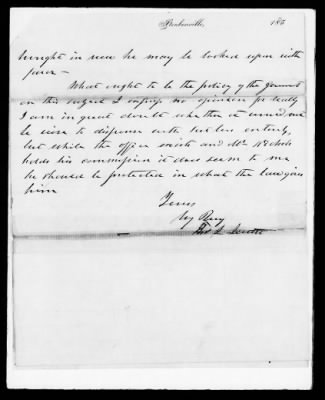 Brokenville, 186
brought in now he may be looked upon with
favor —
What ought to be the policy of the government
on this subject I express no opinion for really
I am in great doubt whether it would not
be wise to dispense with entirely,
but while the office exists and Mr Nichols
holds his commission it does seem to me
he should be protected in what the law gives
him
Yours
very Resy